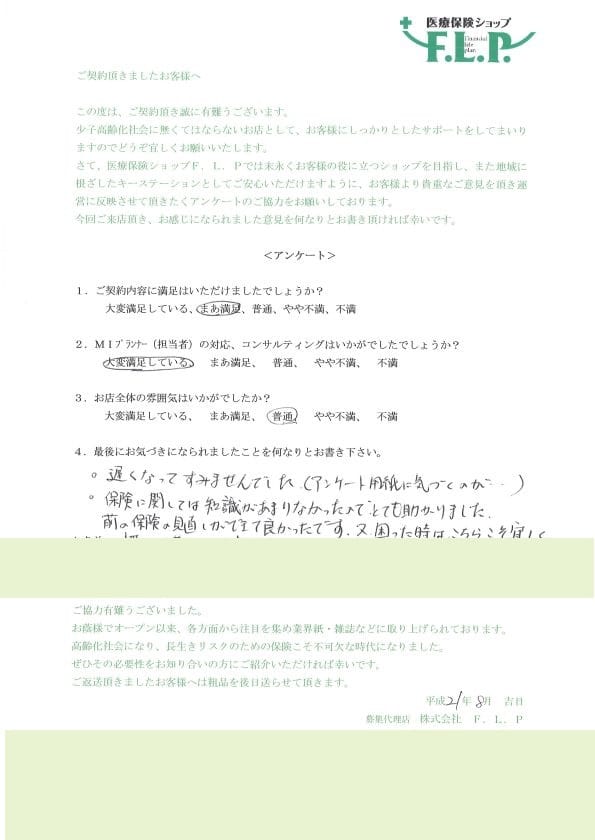 医療保険ショップ
F.L.P.
Financial
life
plan
ご契約頂きましたお客様へ
この度は、ご契約頂き誠に有難うございます。
少子高齢化社会に無くてはならないお店として、お客様にしっかりとしたサポートをしてまいり
ますのでどうぞ宜しくお願いいたします。
さて、医療保険ショップF．L．Pでは末永くお客様の役に立つショップを目指し、また地域に
根ざしたキーステーションとしてご安心いただけますように、お客様より貴重なご意見を頂き運
営に反映させて頂きたくアンケートのご協力をお願いしております。
今回ご来店頂き、お感じになられました意見を何なりとお書き頂ければ幸いです。
＜アンケート＞
１．ご契約内容に満足はいただけましたでしょうか？
大変満足している、まあ満足、普通、やや不満、不満
２．ＭＩﾌﾟﾗﾝﾅｰ（担当者）の対応、コンサルティングはいかがでしたでしょうか？
大変満足している、 まあ満足、 普通、 やや不満、 不満
３．お店全体の雰囲気はいかがでしたか？
大変満足している、 まあ満足、 普通、 やや不満、 不満
４．最後にお気づきになられましたことを何なりとお書き下さい。
○ 遅くなってすみませんでした（アンケート用紙に気づくのが…）
○ 保険に関しては知識があまりなかったのでとても助かりました．
前の保険の見直しができて良かったです．又困った時はこちらこそ宜しく
ご協力有難うございました。
お蔭様でオープン以来、各方面から注目を集め業界紙・雑誌などに取り上げられております。
高齢化社会になり、長生きリスクのための保険こそ不可欠な時代になりました。
ぜひその必要性をお知り合いの方にご紹介いただければ幸いです。
ご返送頂きましたお客様へは粗品を後日送らせて頂きます。
平成21年 8月 吉日
募集代理店 株式会社 Ｆ．Ｌ．Ｐ